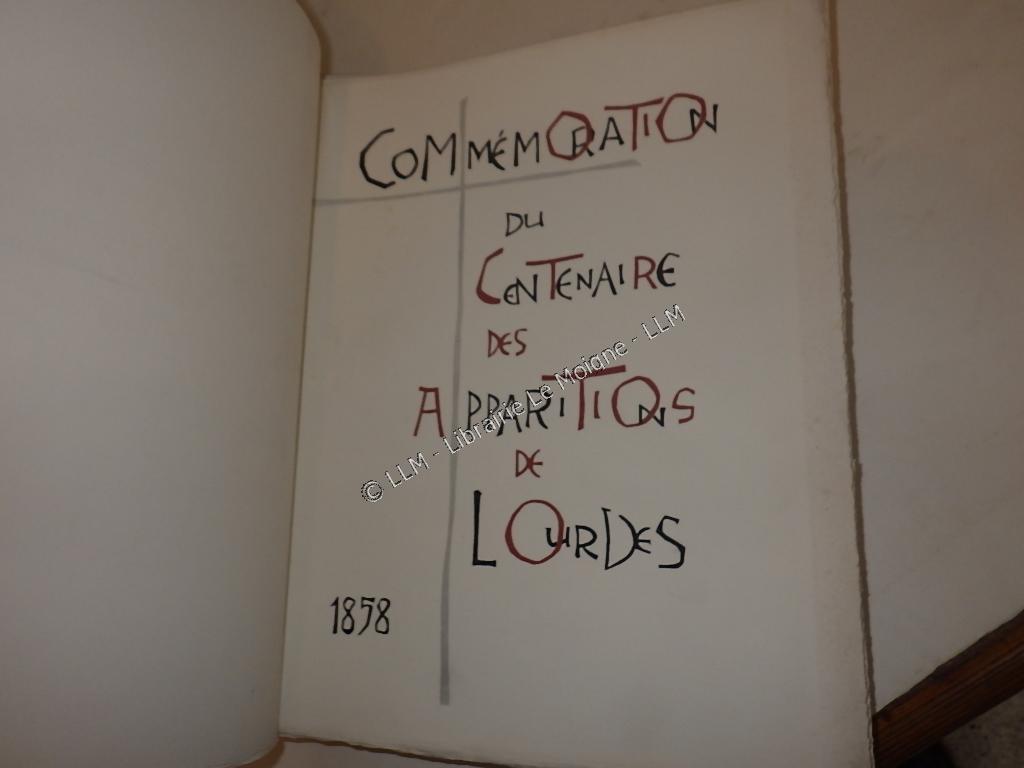 COMMÉMORATION
DU
CENTENAIRE
DES
APPARITIONS
DE
LOURDES
1858
© LLM - Librairie Le Moigne - LLM